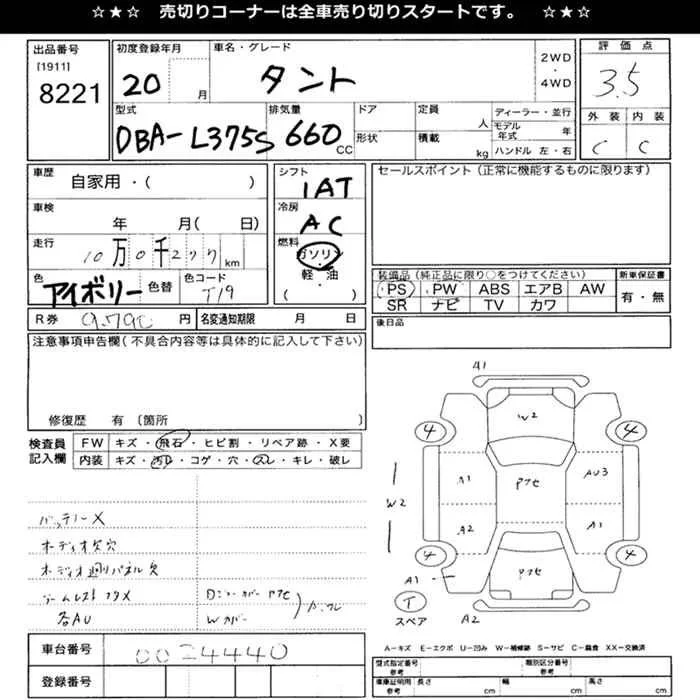 ☆★☆ 売切りコーナーは全車売り切りスタートです。 ☆★☆
出品番号
[1911]
8221
初度登録年月
20 月
車名・グレード
タント
2WD
・
4WD
評価点
3.5
外装 内装
C C
型式
DBA-L375S
排気量
660 CC
ドア
形状
定員
人
積載
kg
ディーラー・並行
モデル年式 年
ハンドル 左・右
車歴
自家用・( )
車検
年 月( 日)
走行
10万0千277km
色
アイボリー
色替
色コード
T19
シフト
IAT
冷房
AC
燃料
ガソリン
・
軽・油
( )
セールスポイント(正常に機能するものに限ります)
装備品(純正品に限り○をつけてください)
PS PW ABS エアB AW
SR ナビ TV カワ
新車保証書
有・無
R券 9,790 円
名変通知期限 月 日
後日品
注意事項申告欄(不具合内容等は具体的に記入して下さい)
修復歴 有〔箇所 〕
検査員
記入欄
FW キズ・飛石・ヒビ割・リペア跡・X要
内装 キズ・汚レ・コゲ・穴・スレ・キレ・破レ
バッテリーX
オーディオ欠穴
オーディオ廻りパネル欠
アームレストフタX
各AU
Wカバー
A1
W2
4 4
A1 アセ AU3
W2
A2 A1
4 4
アセ
A1
T
スペア
A2
車台番号 0024440
登録番号
A－キズ E－エクボ U－凹み W－補修跡 S－サビ C－腐食 XX－交換済
型式指定番号
参考
類別区分番号
参考
車庫証明用
参考
長さ cm
幅 cm
高さ cm